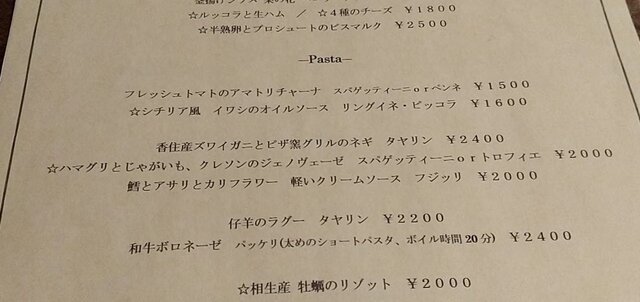 釜揚げシラス 菜の花
☆ルッコラと生ハム ／ ☆４種のチーズ ￥１８００
☆半熟卵とプロシュートのビスマルク ￥２５００
―Pasta―
フレッシュトマトのアマトリチャーナ スパゲッティーニｏｒペンネ ￥１５００
☆シチリア風 イワシのオイルソース リングイネ・ピッコラ ￥１６００
香住産ズワイガニとピザ窯グリルのネギ タヤリン ￥２４００
☆ハマグリとじゃがいも、クレソンのジェノヴェーゼ スパゲッティーニｏｒトロフィエ ￥２０００
鱈とアサリとカリフラワー 軽いクリームソース フジッリ ￥２０００
仔羊のラグー タヤリン ￥２２００
和牛ボロネーゼ パッケリ(太めのショートパスタ、ボイル時間20分) ￥２４００
☆相生産 牡蠣のリゾット ￥２０００